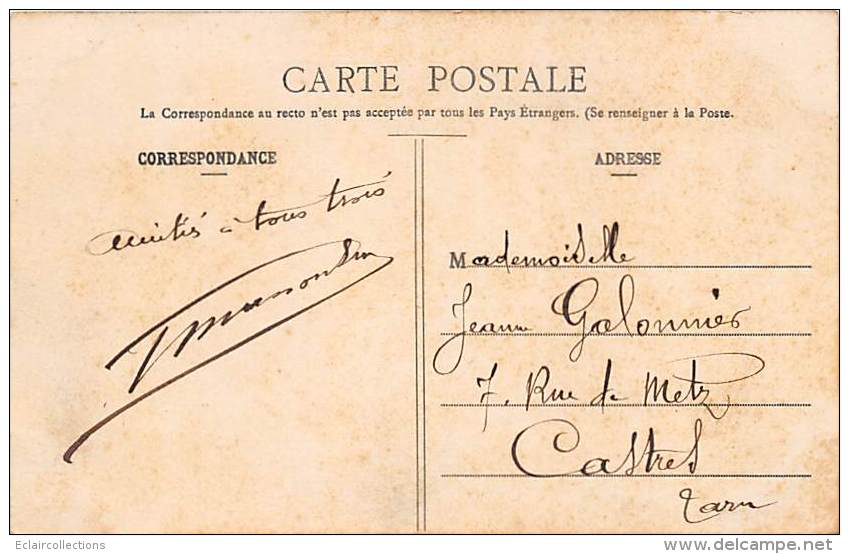 CARTE POSTALE
La Correspondance au recto n'est pas acceptée par tous les Pays Étrangers. (Se renseigner à la Poste.
CORRESPONDANCE
amitiés à tous trois
ADRESSE
Mademoiselle
Jeanne Galonnier
7, Rue de Metz
Castres
Tarn
Eclaircollections
www.delcampe.net